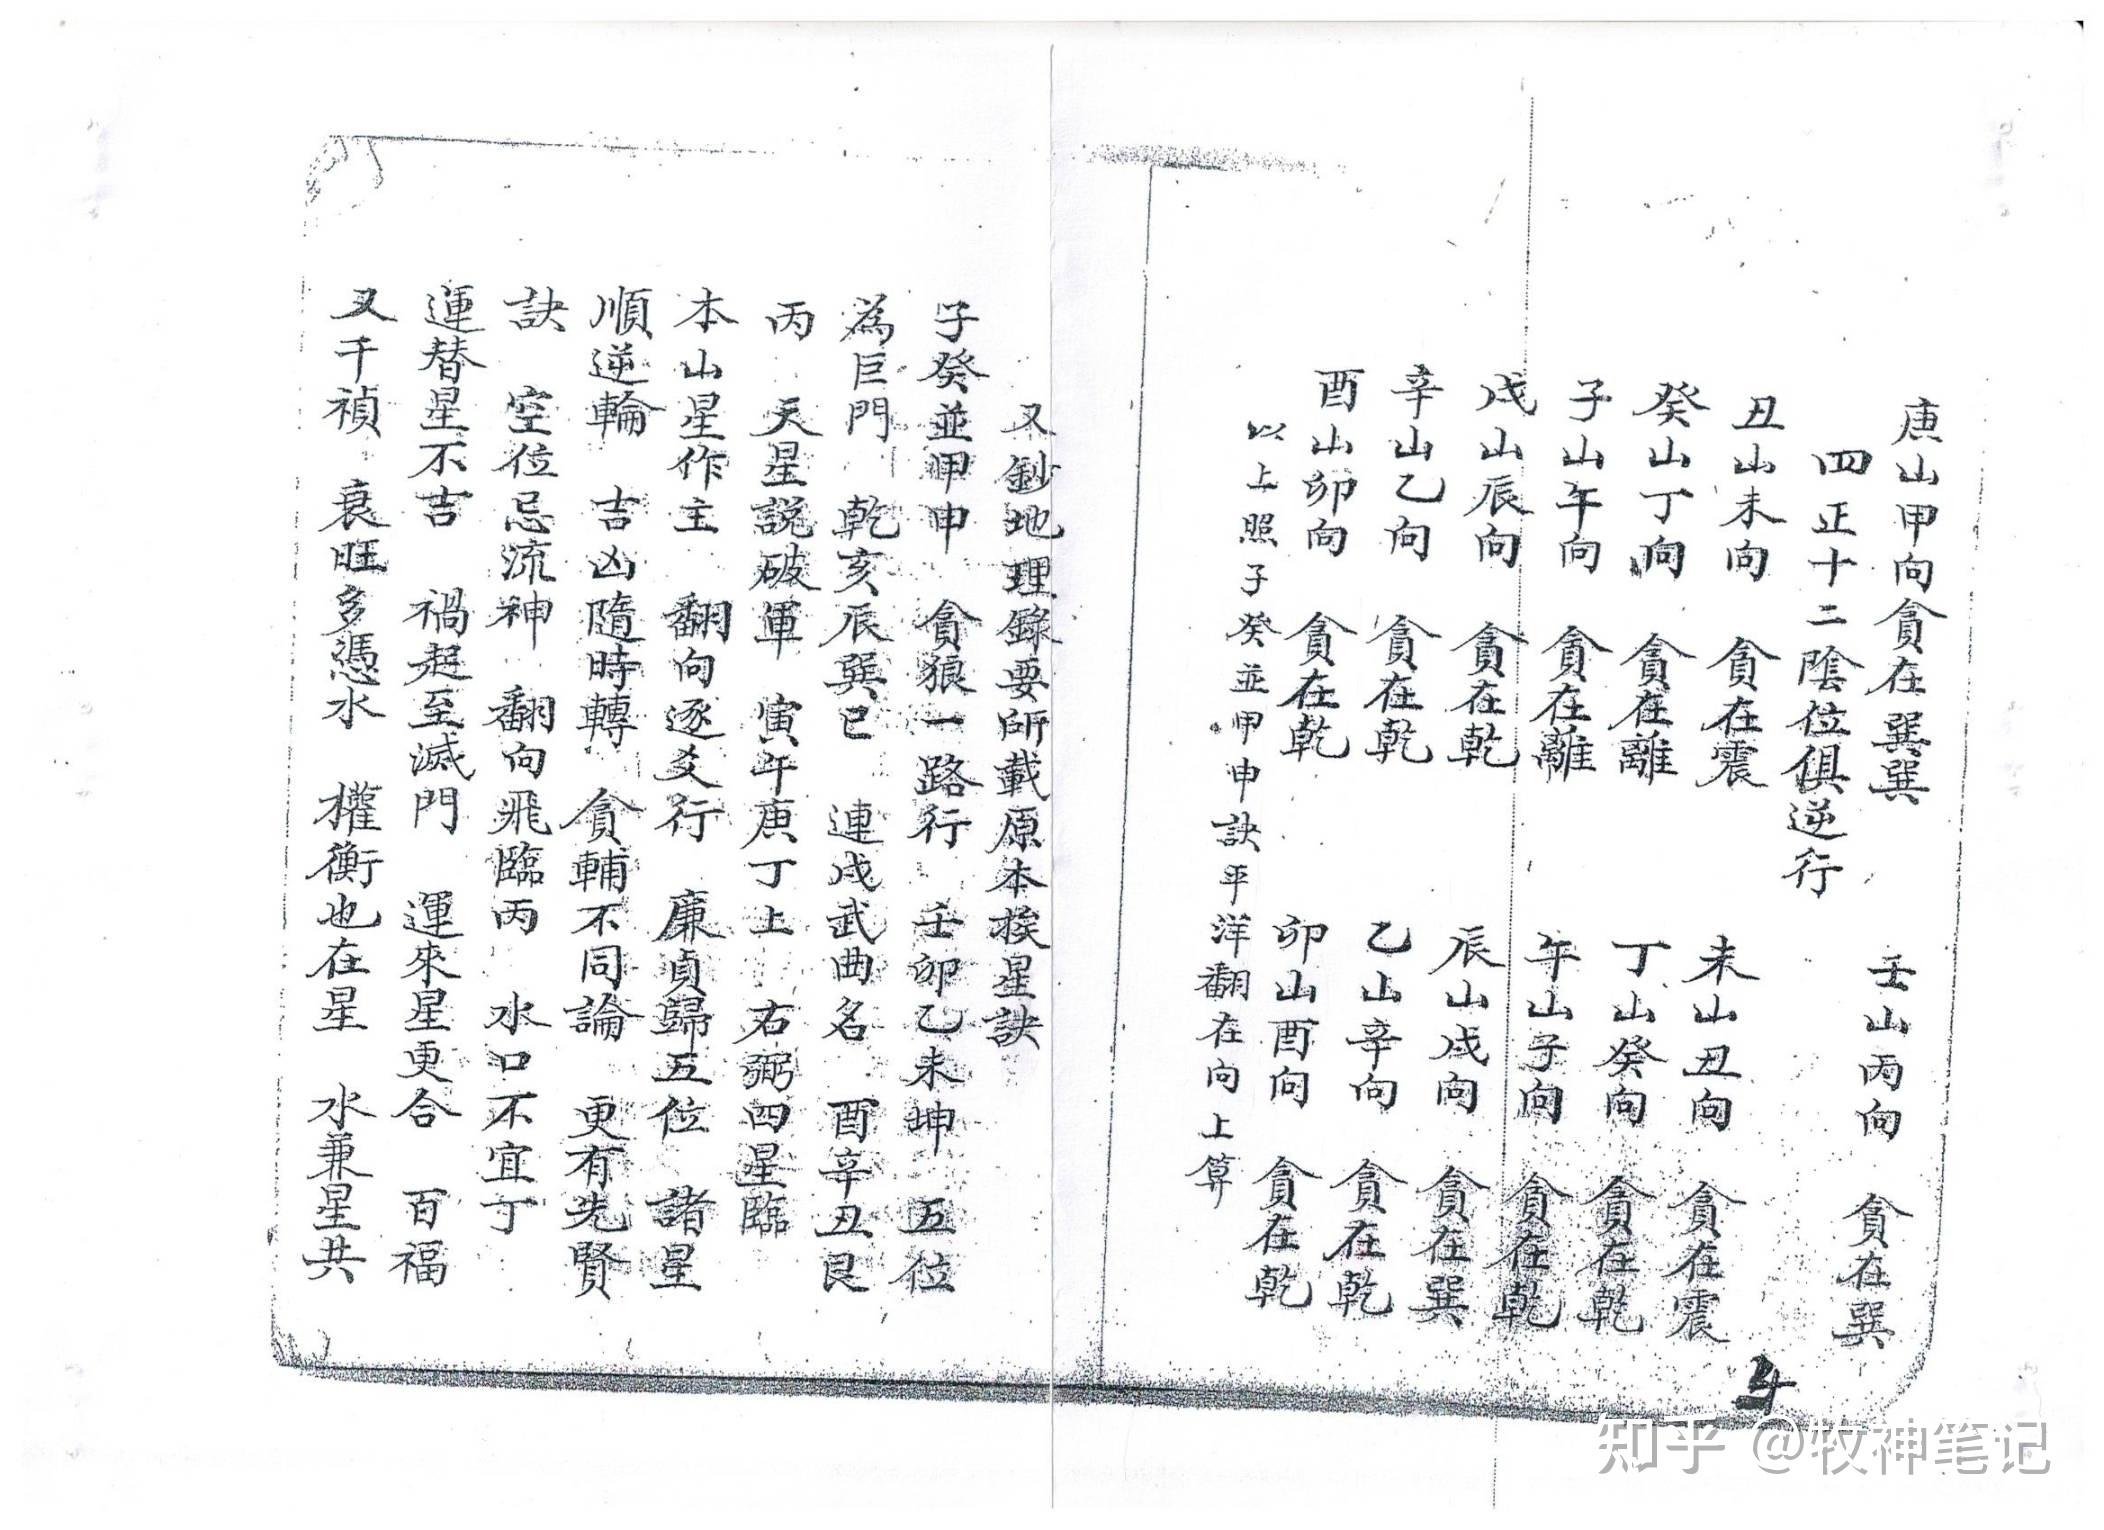 庚山甲向貪在巽巽　壬山丙向　貪在巽
四正十二陰位俱逆行
丑山未向　貪在震　未山丑向　貪在震
癸山丁向　貪在離　丁山癸向　貪在乾
子山午向　貪在離　午山子向　貪在乾
戌山辰向　貪在乾　辰山戌向　貪在巽
辛山乙向　貪在乾　乙山辛向　貪在乾
酉山卯向　貪在乾　卯山酉向　貪在乾
以上照子癸並甲申訣平洋翻在向上算
又鈔地理錄要所載原本挨星訣
子癸並甲申　貪狼一路行　壬卯乙未坤　五位
為巨門　乾亥辰巽巳　連戌武曲名　酉辛丑艮
丙　天星説破軍　寅午庚丁上　右弼四星臨
本山星作主　翻向逐爻行　廉貞歸五位　諸星
順逆輪　吉凶隨時轉　貪輔不同論　更有先賢
訣　空位忌流神　翻向飛臨丙　水口不宜丁
運替星不吉　禍起至滅門　運來星更合　百福
又千禎　衰旺多憑水　權衡也在星　水兼星共
4
知乎 @牧神笔记